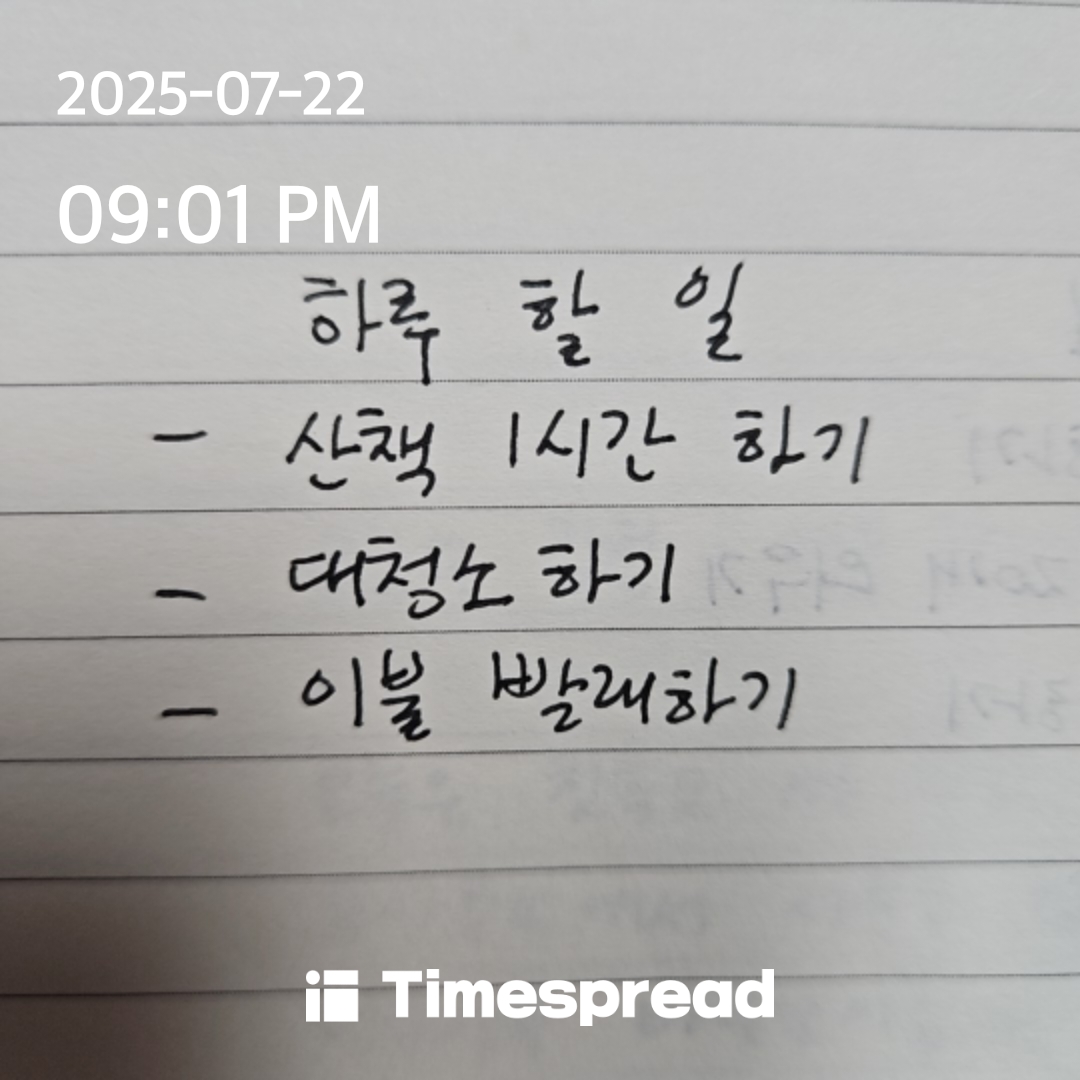 2025-07-22
09:01 PM
하루 할 일
- 산책 1시간 하기
- 대청소 하기
- 이불 빨래하기
Timespread